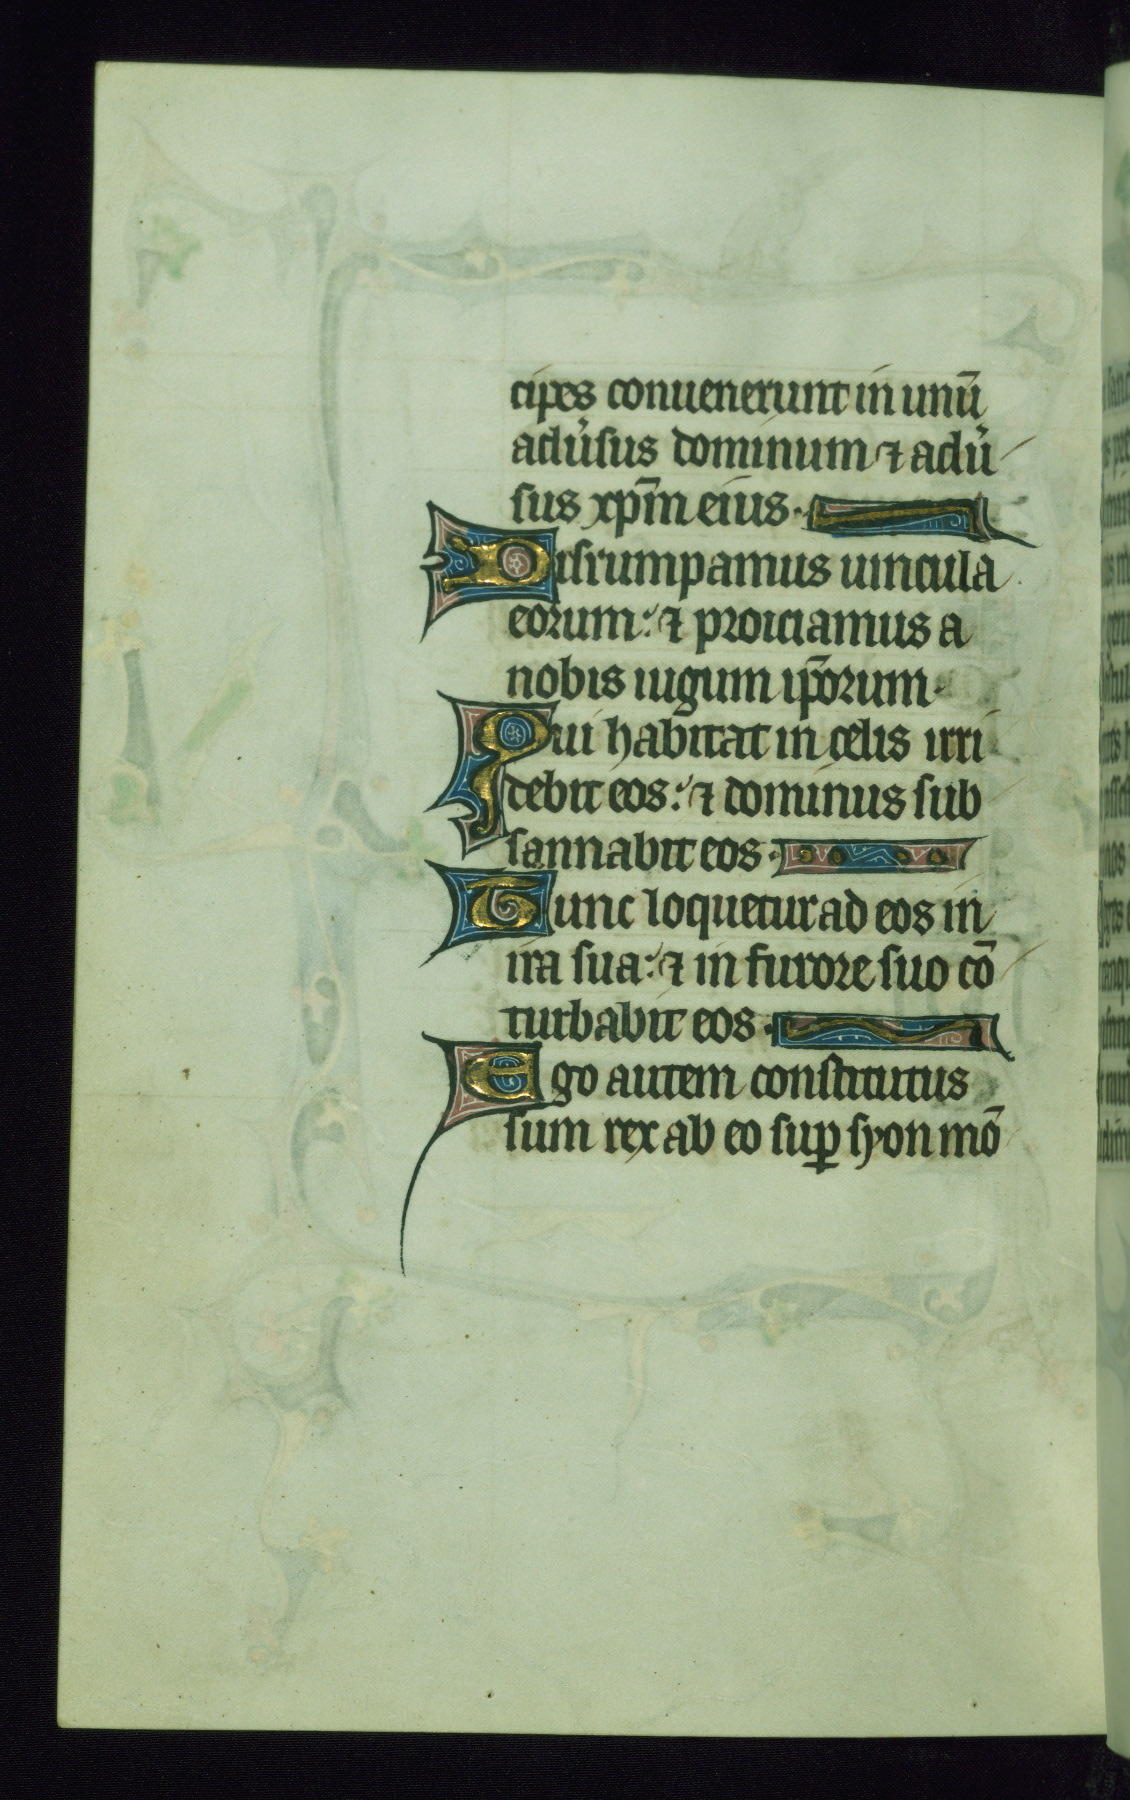 cipes conuenerunt in unū
adūsus dominum ⁊ adū
sus xp̄m eius.
Disrumpamus uincula
eorum: ⁊ proiciamus a
nobis iugum ip̄orum.
Qui habitat in celis irri
debit eos: ⁊ dominus sub
sannabit eos.
Tunc loquetur ad eos in
ira sua: ⁊ in furore suo cō
turbabit eos.
Ego autem constitutus
sum rex ab eo suꝑ syon mō